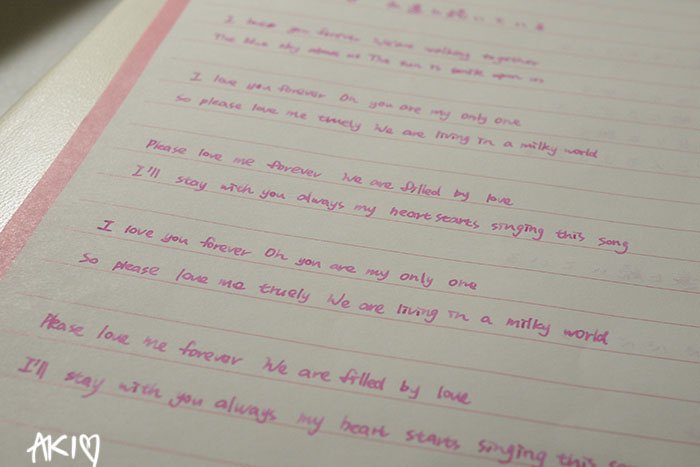 永遠に続いている
I love you forever We are walking together
The blue sky above us The sun is smile upon us
I love you forever Oh you are my only one
So please love me truely We are living in a milky world
Please love me forever We are filled by love
I'll stay with you always my heart starts singing this song
I love you forever Oh you are my only one
So please love me truely We are living in a milky world
Please love me forever We are filled by love
I'll stay with you always my heart starts singing this so
AKI♡